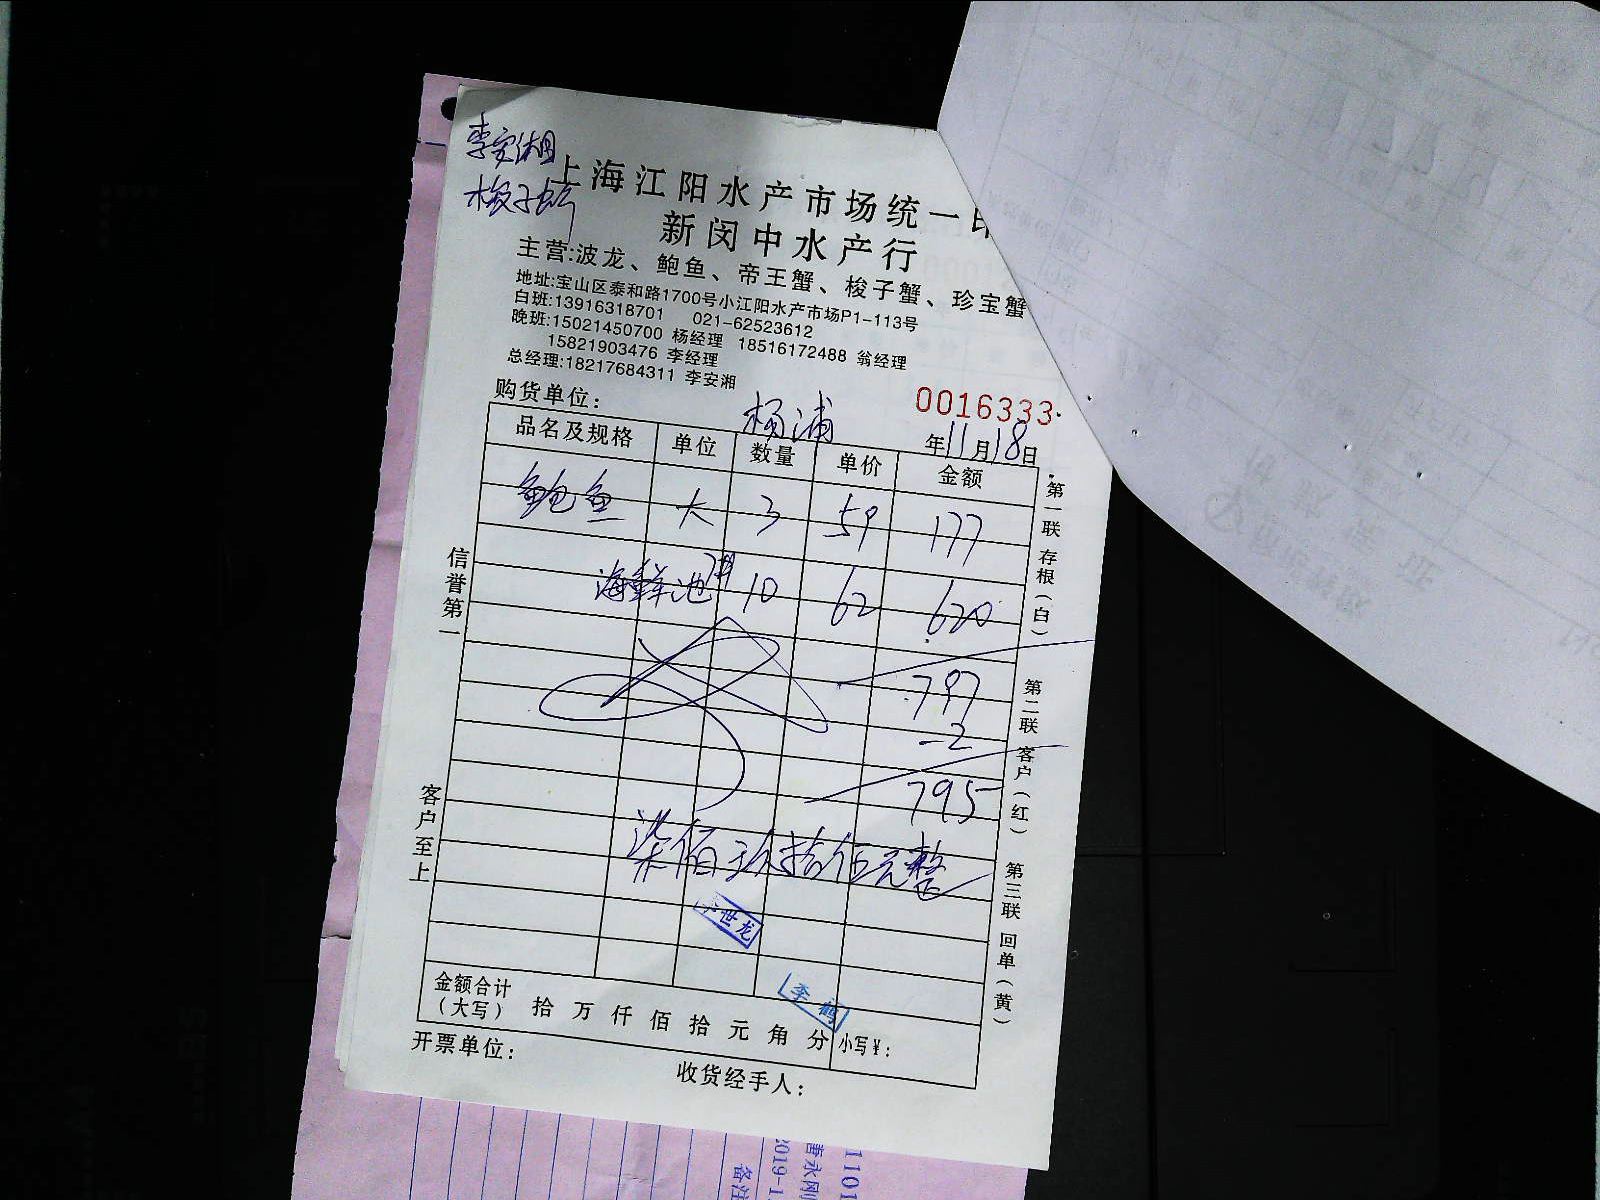 李安湘
梭子蟹
上海江阳水产市场统一印
新闵中水产行
主营:波龙、鲍鱼、帝王蟹、梭子蟹、珍宝蟹
地址:宝山区泰和路1700号小江阳水产市场P1-113号
白班:13916318701 021-62523612
晚班:15021450700 杨经理 18516172488 翁经理
15821903476 李经理
总经理:18217684311 李安湘
购货单位: 杨浦
0016333
年11月18日
品名及规格 单位 数量 单价 金额
鲍鱼 大 3 59 177
海鲜池 10 62 620
797
-2
795
柒佰玖拾伍元整
世龙
李鹤
金额合计
(大写) 拾 万 仟 佰 拾 元 角 分 小写¥:
开票单位:
收货经手人:
信誉第一
客户至上
第一联 存根(白)
第二联 客户(红)
第三联 回单(黄)
1101
唐永刚
2019-1
备注